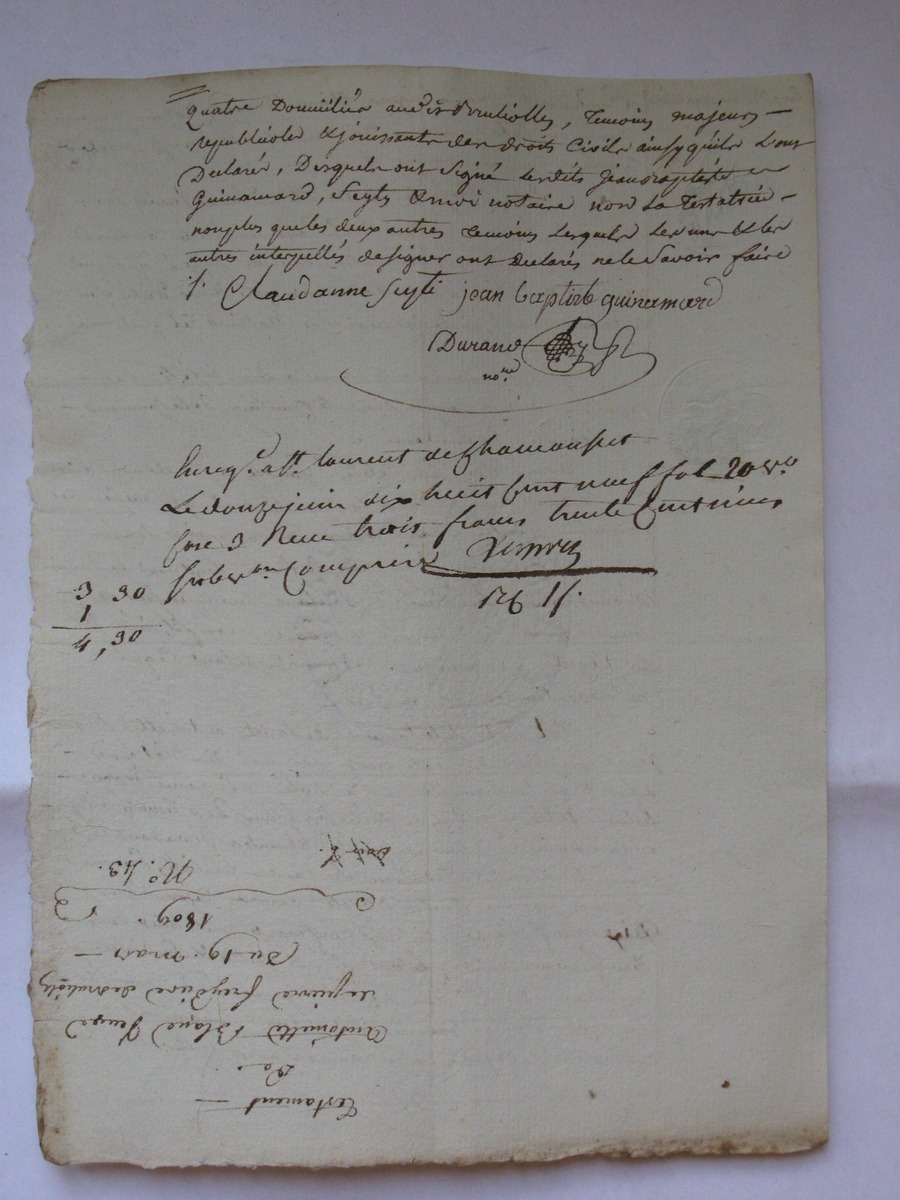 quatre Domiciliés audit Druliolles, Temoins majeurs —
republicoles & jouissants des droits Civils ainsy qu'ils L'ont
Declaré, Desquels ont Signé Lesdits jean baptiste
Guinamard, Seyti & moi notaire non La Testatrice
non plus que les deux autres Temoins Lesquels Les uns & les
autres interpellés de signer ont Declarés ne le Savoir faire
Claud anne Seyti jean baptiste guinamard
Durand
nore
Enregé. a st. laurent de Chamousset
Le douze juin dix huit Cent neuf fol 20 vo
Case 3 Reçu trois francs trente Centimes
subvon Comprise
3 30
1
4,30
Testament —
De
Antoinette Blanc veuve
de pierre freydiere
Du 19. mars —
1809.
No. 43.